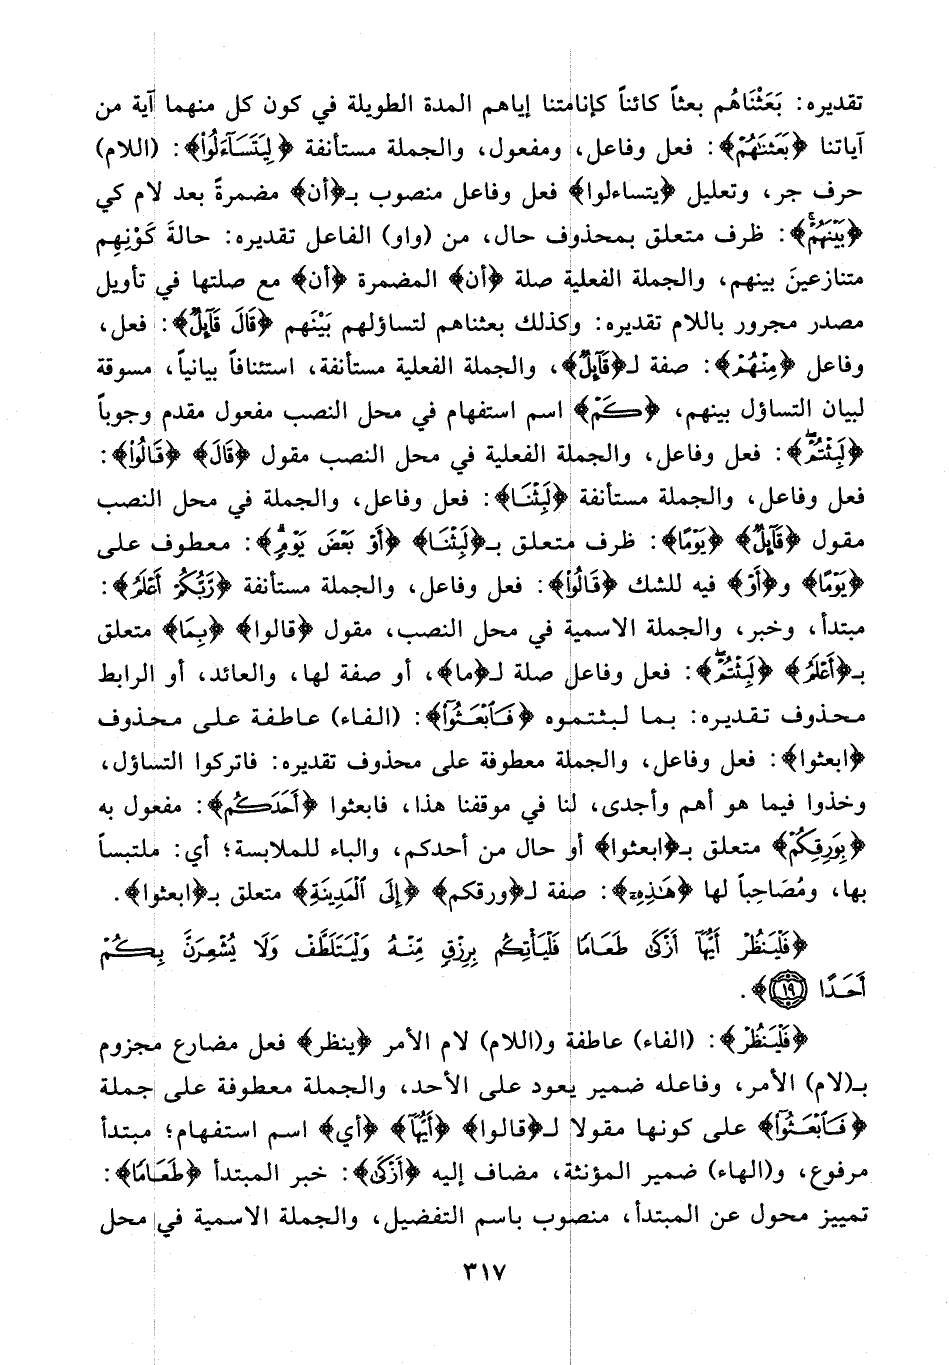 تقديره: بَعَثْنَاهُم بعثاً كائناً كإنامتنا إياهم المدة الطويلة في كون كل منهما آية من
آياتنا ﴿بَعَثْنَٰهُمْ﴾: فعل وفاعل، ومفعول، والجملة مستأنفة ﴿لِيَتَسَآءَلُوا۟﴾: (اللام)
حرف جر، وتعليل ﴿يتساءلوا﴾ فعل وفاعل منصوب بـ﴿أن﴾ مضمرةً بعد لام كي
﴿بَيْنَهُمْ ۚ﴾: ظرف متعلق بمحذوف حال، من (واو) الفاعل تقديره: حالةَ كَوْنِهِم
متنازعينَ بينهم، والجملة الفعلية صلة ﴿أن﴾ المضمرة ﴿أن﴾ مع صلتها في تأويل
مصدر مجرور باللام تقديره: وكذلك بعثناهم لتساؤلهم بَيْنَهم ﴿قَالَ قَآئِلٌ﴾: فعل،
وفاعل ﴿مِنْهُمْ﴾: صفة لـ﴿قَآئِلٌ﴾، والجملة الفعلية مستأنفة، استئنافاً بيانياً، مسوقة
لبيان التساؤل بينهم، ﴿كَمْ﴾ اسم استفهام في محل النصب مفعول مقدم وجوباً
﴿لَبِثْتُمْ ۖ﴾: فعل وفاعل، والجملة الفعلية في محل النصب مقول ﴿قَالَ﴾ ﴿قَالُوا۟﴾:
فعل وفاعل، والجملة مستأنفة ﴿لَبِثْنَا﴾: فعل وفاعل، والجملة في محل النصب
مقول ﴿قَآئِلٌ﴾ ﴿يَوْمًا﴾: ظرف متعلق بـ﴿لَبِثْنَا﴾ ﴿أَوْ بَعْضَ يَوْمٍ ۚ﴾: معطوف على
﴿يَوْمًا﴾ و﴿أَوْ﴾ فيه للشك ﴿قَالُوا۟﴾: فعل وفاعل، والجملة مستأنفة ﴿رَبُّكُمْ أَعْلَمُ﴾:
مبتدأ، وخبر، والجملة الاسمية في محل النصب، مقول ﴿قالوا﴾ ﴿بِمَا﴾ متعلق
بـ﴿أَعْلَمُ﴾ ﴿لَبِثْتُمْ ۖ﴾: فعل وفاعل صلة لـ﴿ما﴾، أو صفة لها، والعائد، أو الرابط
محذوف تقديره: بما لبثتموه ﴿فَٱبْعَثُوٓا۟﴾: (الفاء) عاطفة على محذوف
﴿ابعثوا﴾: فعل وفاعل، والجملة معطوفة على محذوف تقديره: فاتركوا التساؤل،
وخذوا فيما هو أهم وأجدى، لنا في موقفنا هذا، فابعثوا ﴿أَحَدَكُم﴾: مفعول به
﴿بِوَرِقِكُمْ﴾ متعلق بـ﴿ابعثوا﴾ أو حال من أحدكم، والباء للملابسة؛ أي: ملتبساً
بها، ومُصَاحِباً لها ﴿هَٰذِهِۦٓ﴾: صفة لـ﴿ورقكم﴾ ﴿إِلَى ٱلْمَدِينَةِ﴾ متعلق بـ﴿ابعثوا﴾.
﴿فَلْيَنظُرْ أَيُّهَآ أَزْكَىٰ طَعَامًا فَلْيَأْتِكُم بِرِزْقٍ مِّنْهُ وَلْيَتَلَطَّفْ وَلَا يُشْعِرَنَّ بِكُمْ
أَحَدًا ١٩﴾.
﴿فَلْيَنظُرْ﴾: (الفاء) عاطفة و(اللام) لام الأمر ﴿ينظر﴾ فعل مضارع مجزوم
بـ(لام) الأمر، وفاعله ضمير يعود على الأحد، والجملة معطوفة على جملة
﴿فَٱبْعَثُوٓا۟﴾ على كونها مقولا لـ﴿قالوا﴾ ﴿أَيُّهَآ﴾ ﴿أي﴾ اسم استفهام؛ مبتدأ
مرفوع، و(الهاء) ضمير المؤنثة، مضاف إليه ﴿أَزْكَىٰ﴾: خبر المبتدأ ﴿طَعَامًا﴾:
تمييز محول عن المبتدأ، منصوب باسم التفضيل، والجملة الاسمية في محل
٣١٧